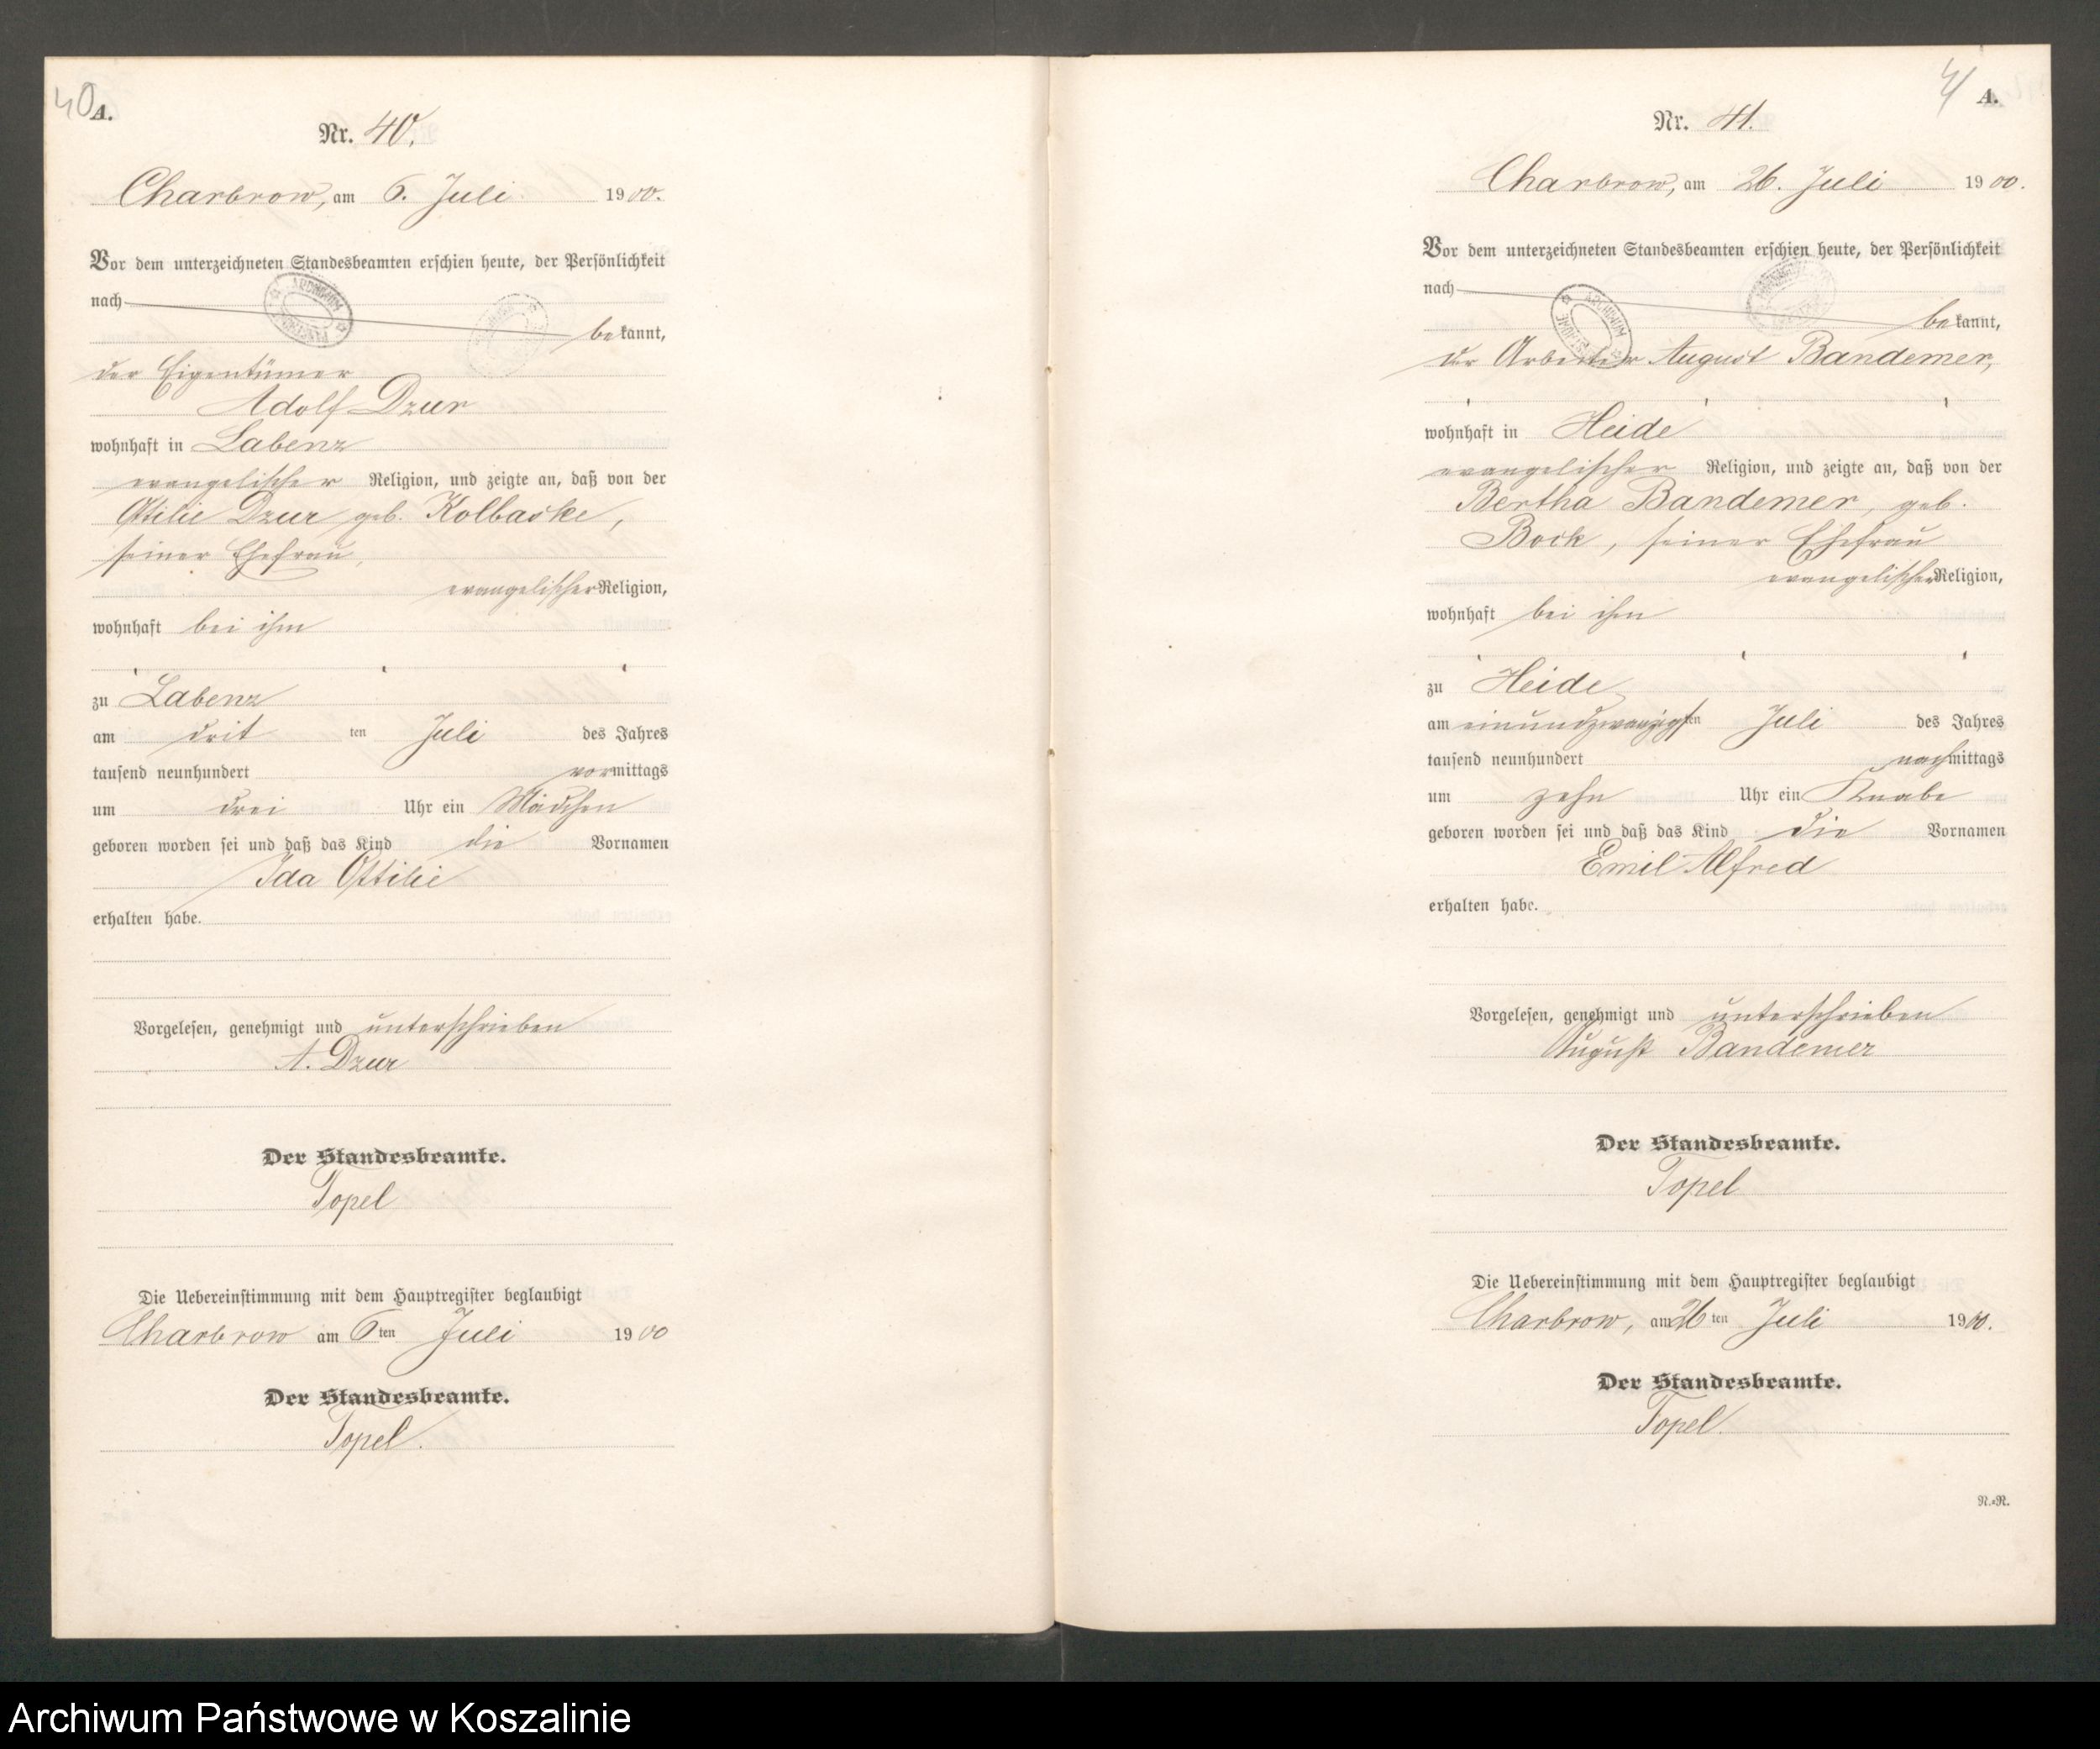 40
A.
Nr. 40.
Charbrow, am 6. Juli 1900.
Vor dem unterzeichneten Standesbeamten erschien heute, der Persönlichkeit
nach
bekannt,
der Eigentümer
Adolf Dzur
wohnhaft in Labenz
evangelischer Religion, und zeigte an, daß von der
Ottilie Dzur geb. Kolbaske,
seiner Ehefrau,
evangelischer Religion,
wohnhaft bei ihm
zu Labenz
am dritten Juli des Jahres
tausend neunhundert vormittags
um drei Uhr ein Mädchen
geboren worden sei und daß das Kind die Vornamen
Ida Ottilie
erhalten habe.
Vorgelesen, genehmigt und unterschrieben
A. Dzur
Der Standesbeamte.
Topel
Die Uebereinstimmung mit dem Hauptregister beglaubigt
Charbrow am 6ten Juli 1900
Der Standesbeamte.
Topel.
41
A.
Nr. 41.
Charbrow, am 26. Juli 1900.
Vor dem unterzeichneten Standesbeamten erschien heute, der Persönlichkeit
nach
bekannt,
der Arbeiter August Bandemer,
wohnhaft in Heide
evangelischer Religion, und zeigte an, daß von der
Bertha Bandemer, geb.
Bock, seiner Ehefrau
evangelischer Religion,
wohnhaft bei ihm
zu Heide
am einundzwanzigsten Juli des Jahres
tausend neunhundert nachmittags
um zehn Uhr ein Knabe
geboren worden sei und daß das Kind die Vornamen
Emil Alfred
erhalten habe.
Vorgelesen, genehmigt und unterschrieben
August Bandemer
Der Standesbeamte.
Topel
Die Uebereinstimmung mit dem Hauptregister beglaubigt
Charbrow, am 26ten Juli 1900.
Der Standesbeamte.
Topel.
N.=R.
Archiwum Państwowe w Koszalinie